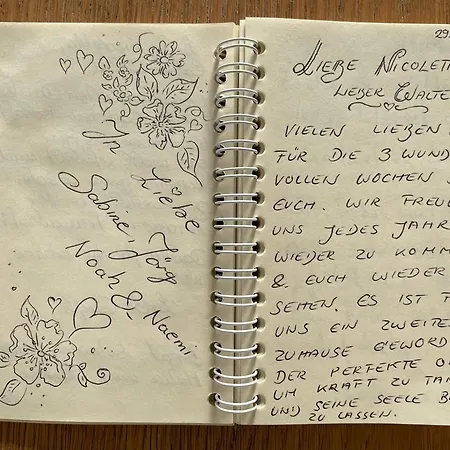 In Liebe
Sabine, Jörg
Noah & Naemi
29.
Liebe Nicolett
lieber Walte
Vielen lieben
für die 3 wund
vollen Wochen
euch. Wir freu
uns jedes Jahr
wieder zu komm
& euch wieder
sehen. Es ist f
uns ein zweites
Zuhause geword
Der perfekte O
um Kraft zu tan
und seine Seele b
zu lassen.